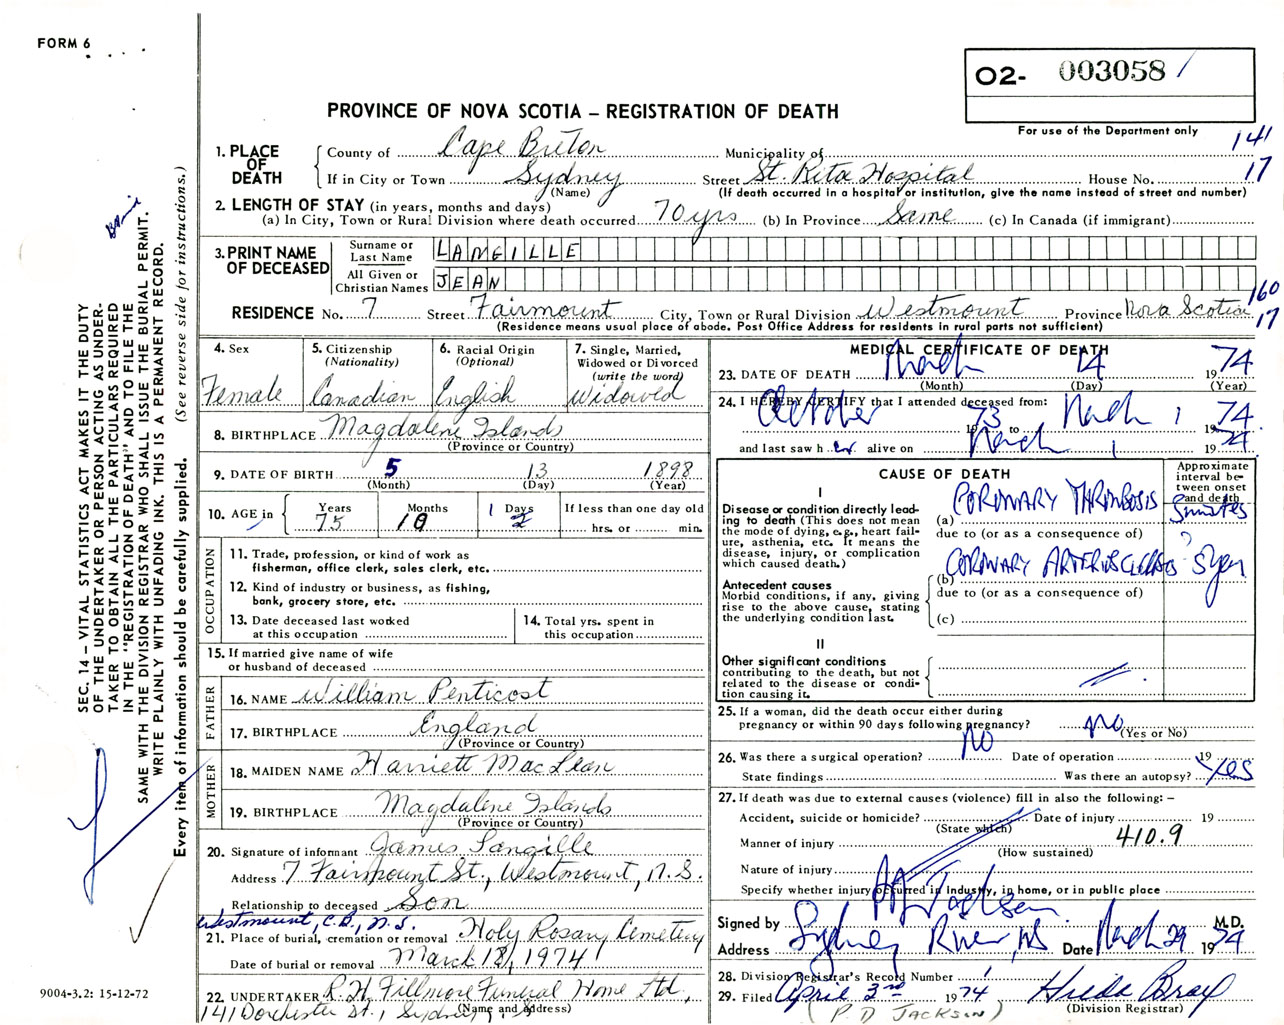 FORM 6
O2- 003058
For use of the Department only
PROVINCE OF NOVA SCOTIA – REGISTRATION OF DEATH
1. PLACE OF DEATH
County of Cape Breton Municipality of 141
If in City or Town Sydney Street St. Rita Hospital House No. 17
(Name) (If death occurred in a hospital or institution, give the name instead of street and number)
2. LENGTH OF STAY (in years, months and days)
(a) In City, Town or Rural Division where death occurred 70 yrs (b) In Province Same (c) In Canada (if immigrant)
3. PRINT NAME OF DECEASED
Surname or Last Name LANGILLE
All Given or Christian Names JEAN
RESIDENCE No. 7 Street Fairmount City, Town or Rural Division Westmount Province Nova Scotia 160 17
(Residence means usual place of abode. Post Office Address for residents in rural parts not sufficient)
4. Sex Female
5. Citizenship (Nationality) Canadian
6. Racial Origin (Optional) English
7. Single, Married, Widowed or Divorced (write the word) Widowed
8. BIRTHPLACE Magdalene Islands
(Province or Country)
9. DATE OF BIRTH 5 13 1898
(Month) (Day) (Year)
10. AGE in Years Months Days If less than one day old
75 10 1 hrs. or min.
OCCUPATION
11. Trade, profession, or kind of work as fisherman, office clerk, sales clerk, etc.
12. Kind of industry or business, as fishing, bank, grocery store, etc.
13. Date deceased last worked at this occupation
14. Total yrs. spent in this occupation
15. If married give name of wife or husband of deceased
FATHER
16. NAME William Penticost
17. BIRTHPLACE England
(Province or Country)
MOTHER
18. MAIDEN NAME Harriett MacLean
19. BIRTHPLACE Magdalene Islands
(Province or Country)
20. Signature of informant James Langille
Address 7 Fairmount St., Westmount, N.S.
Relationship to deceased Son
Westmount, C.B., N.S.
21. Place of burial, cremation or removal Holy Rosary Cemetery
Date of burial or removal March 18, 1974
22. UNDERTAKER R.H. Fillmore Funeral Home Ltd,
141 Dorchester St., Sydney, N.S. (Name and address)
MEDICAL CERTIFICATE OF DEATH
23. DATE OF DEATH March 14 1974
(Month) (Day) (Year)
24. I HEREBY CERTIFY that I attended deceased from:
October 1973 to March 1 1974
and last saw her alive on March 1 1974
CAUSE OF DEATH
Approximate interval between onset and death
I
Disease or condition directly leading to death (This does not mean the mode of dying, e.g., heart failure, asthenia, etc. It means the disease, injury, or complication which caused death.)
(a) CORONARY THROMBOSIS 5 minutes
due to (or as a consequence of)
Antecedent causes
Morbid conditions, if any, giving rise to the above cause, stating the underlying condition last.
(b) CORONARY ARTERIOSCLEROSIS ? 5 yrs
due to (or as a consequence of)
(c)
II
Other significant conditions contributing to the death, but not related to the disease or condition causing it.
25. If a woman, did the death occur either during pregnancy or within 90 days following pregnancy? NO
(Yes or No)
26. Was there a surgical operation? NO Date of operation 19
State findings Was there an autopsy? Yes
27. If death was due to external causes (violence) fill in also the following: –
Accident, suicide or homicide? Date of injury 19
(State which)
Manner of injury 410.9
(How sustained)
Nature of injury
Specify whether injury occurred in industry, in home, or in public place
Signed by M.D.
Address Sydney River, NS Date March 29 1974
28. Division Registrar's Record Number 1
29. Filed April 3rd 1974 Hilda Bray
(P.D JACKSON) (Division Registrar)
SEC. 14 – VITAL STATISTICS ACT MAKES IT THE DUTY
OF THE UNDERTAKER OR PERSON ACTING AS UNDER-
TAKER TO OBTAIN ALL THE PARTICULARS REQUIRED
IN THE "REGISTRATION OF DEATH" AND TO FILE THE
SAME WITH THE DIVISION REGISTRAR WHO SHALL ISSUE THE BURIAL PERMIT.
WRITE PLAINLY WITH UNFADING INK. THIS IS A PERMANENT RECORD.
Every item of information should be carefully supplied. (See reverse side for instructions.)
9004-3.2: 15-12-72